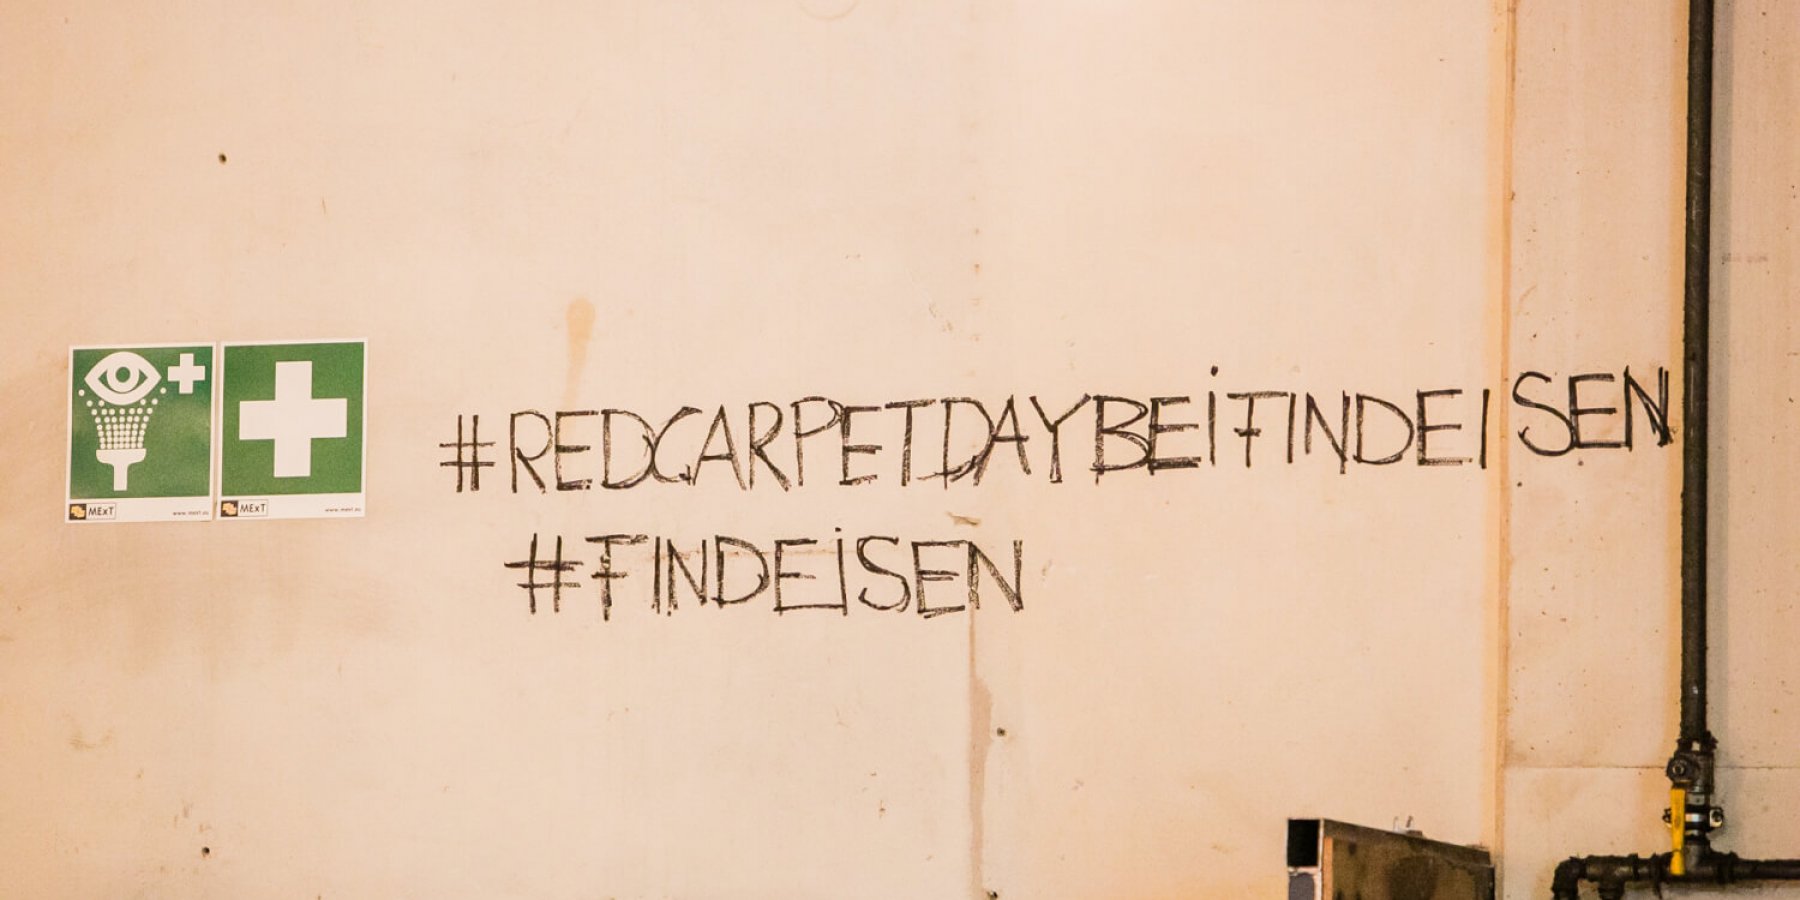 #REDCARPETDAYBEIFINDEISEN
#FINDEISEN
MExT www.mext.eu
MExT www.mext.eu